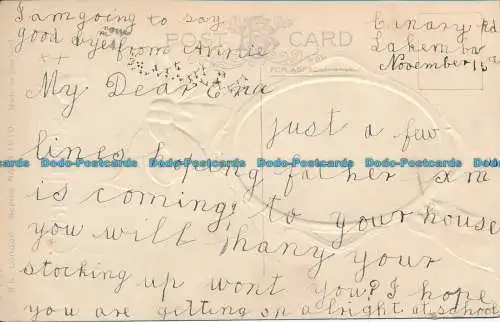 I am going to say
good bye now from Annie
x x
POST CARD
Canary Rd
Lakemba
November 15
My Dear Ena
just a few
lines hoping father xm
is coming to your house
you will hang your
stocking up wont you? I hope
you are getting on alright at school
Dodo-Postcards Dodo-Postcards Dodo-Postcards Dodo-Postcards Dodo-Postcards